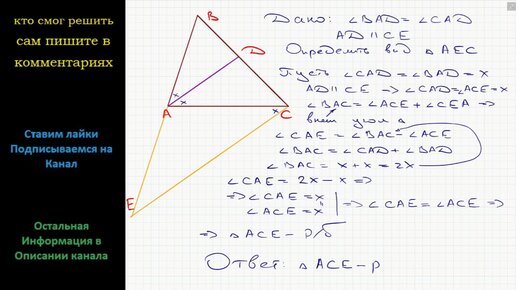 кто смог решить
сам пишите в
комментариях
Ставим лайки
Подписываемся на
Канал
Остальная
Информация в
Описании канала
B
D
A
C
E
x
x
x
Дано: ∠BAD = ∠CAD
AD ∥ CE
Определить вид △AEC
Пусть ∠CAD = ∠BAD = x
AD ∥ CE → ∠CAD = ∠ACE = x
∠BAC = ∠ACE + ∠CEA ⇒
внеш угол
∠CAE = ∠BAC - ∠ACE
∠BAC = ∠CAD + ∠BAD
∠BAC = x + x = 2x
∠CAE = 2x - x ⇒
⇒ ∠CAE = x
∠ACE = x
⇒ ∠CAE = ∠ACE ⇒
⇒ △ACE - р/б
Ответ: △ACE - р